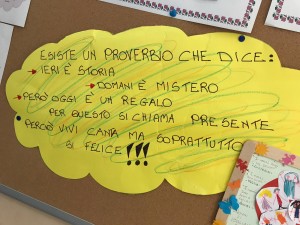 ESISTE UN PROVERBIO CHE DICE:
IERI È STORIA
DOMANI È MISTERO
PERÒ OGGI È UN REGALO
PER QUESTO SI CHIAMA PRESENTE
PERCIÒ VIVI CANTA MA SOPRATTUTTO
SI FELICE!!!